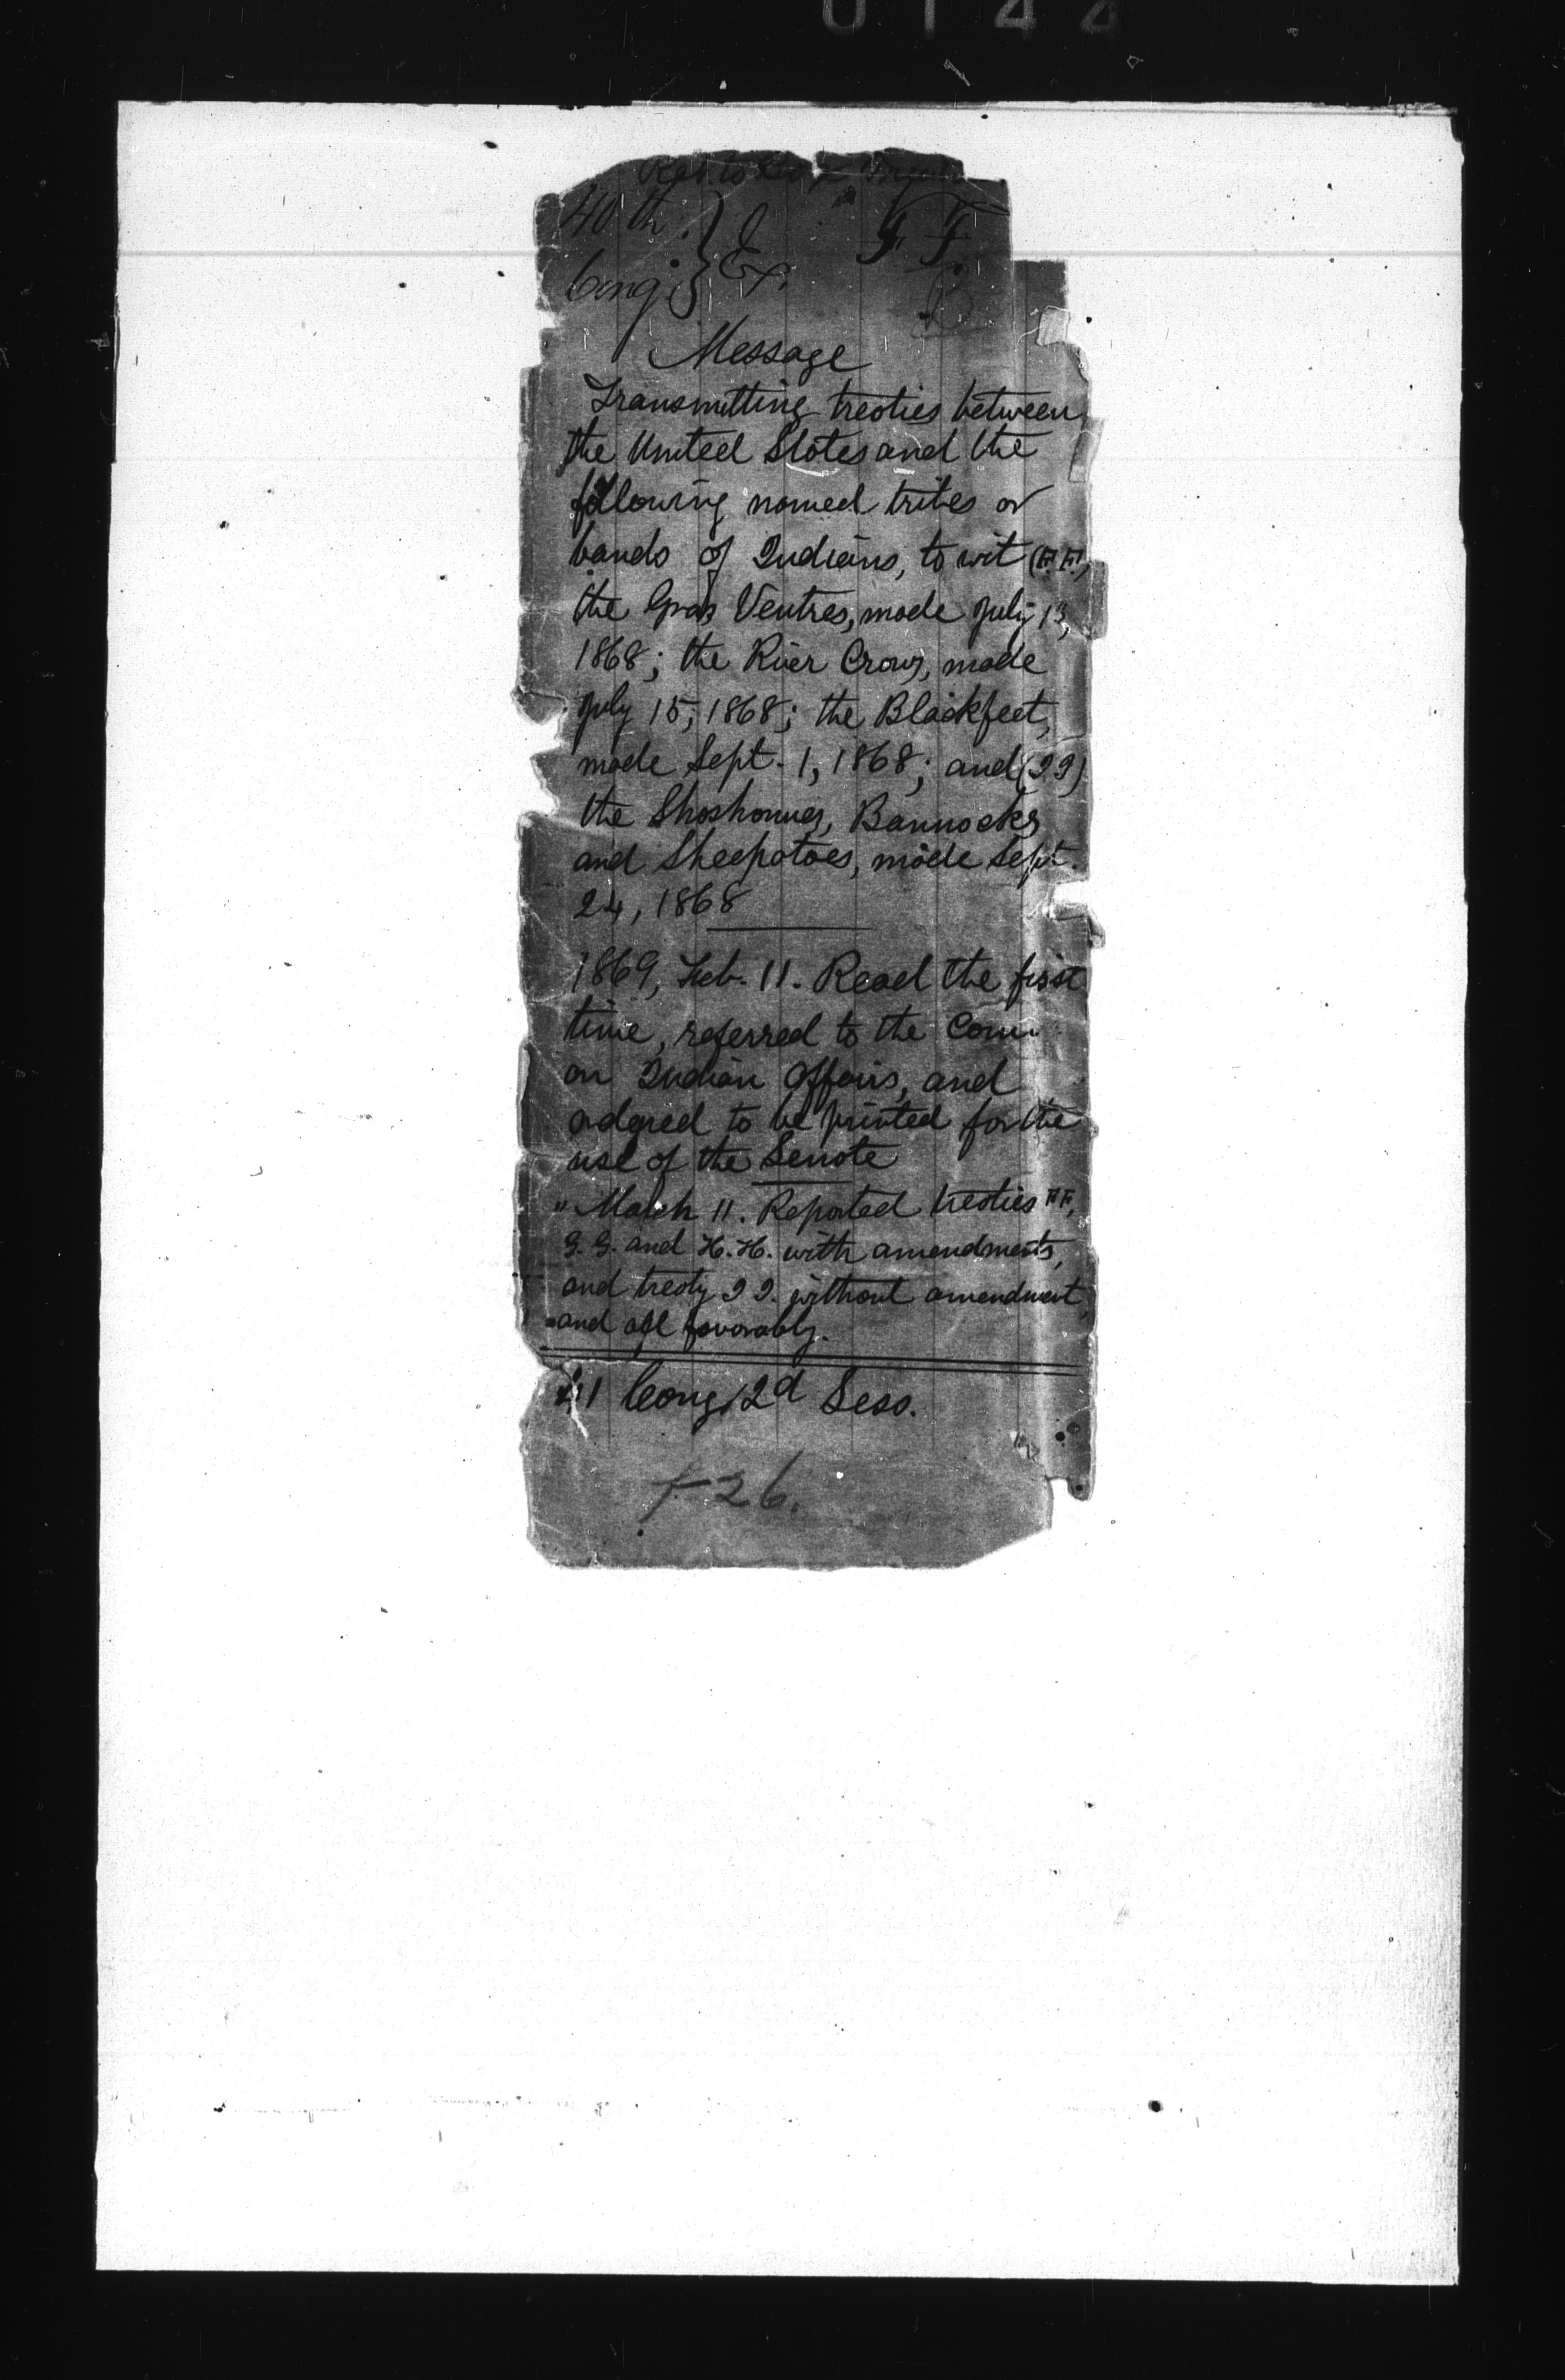 0144
40th
Cong.} Ex. F. F.
Message
Transmitting treaties between
the United States and the
following named tribes or
bands of Indians, to wit (F.F.)
the Gros Ventres, made July 13,
1868; the River Crows, made
July 15, 1868; the Blackfeet,
made Sept. 1, 1868; and (II)
the Shoshonees, Bannocks
and Sheepatoes, made Sept.
24, 1868
1869, Feb. 11. Read the first
time, referred to the Com.
on Indian Affairs, and
ordered to be printed for the
use of the Senate
" March 11. Reported treaties FF,
G. G. and H. H. with amendments,
and treaty I I. without amendment,
and all favorably.
41 Cong. 2d Sess.
F 26.